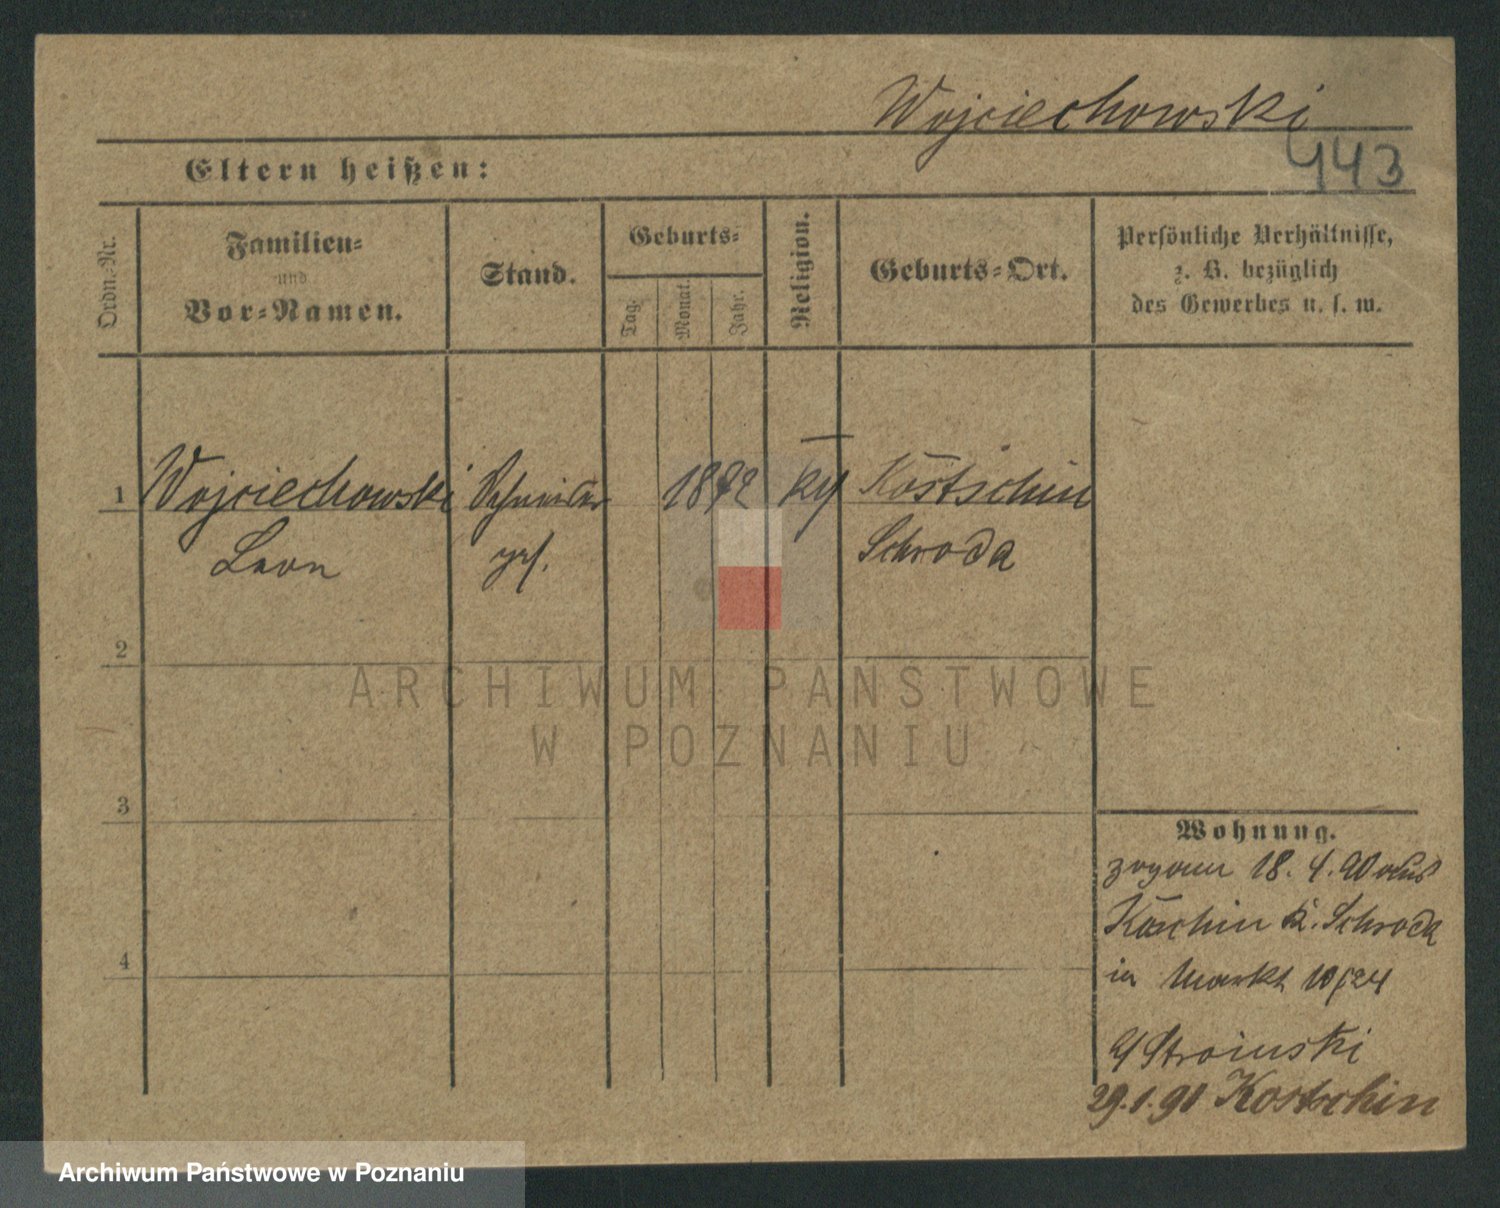 Wojciechowski
443
Eltern heißen:
Ordn.-Nr.
Familien-
und
Vor-Namen.
Stand.
Geburts-
Tag.
Monat.
Jahr.
Religion.
Geburts-Ort.
Persönliche Verhältnisse,
z. B. bezüglich
des Gewerbes u. s. w.
1 Wojciechowski Schneider 1872 Kostschin
Leon Schroda
2
ARCHIWUM PAŃSTWOWE
W POZNANIU
3
4
Wohnung.
18. 4. 90 aus
K. Schroda
in Markt 10/24
Stroinski
29.1.91 Kostschin
Archiwum Państwowe w Poznaniu